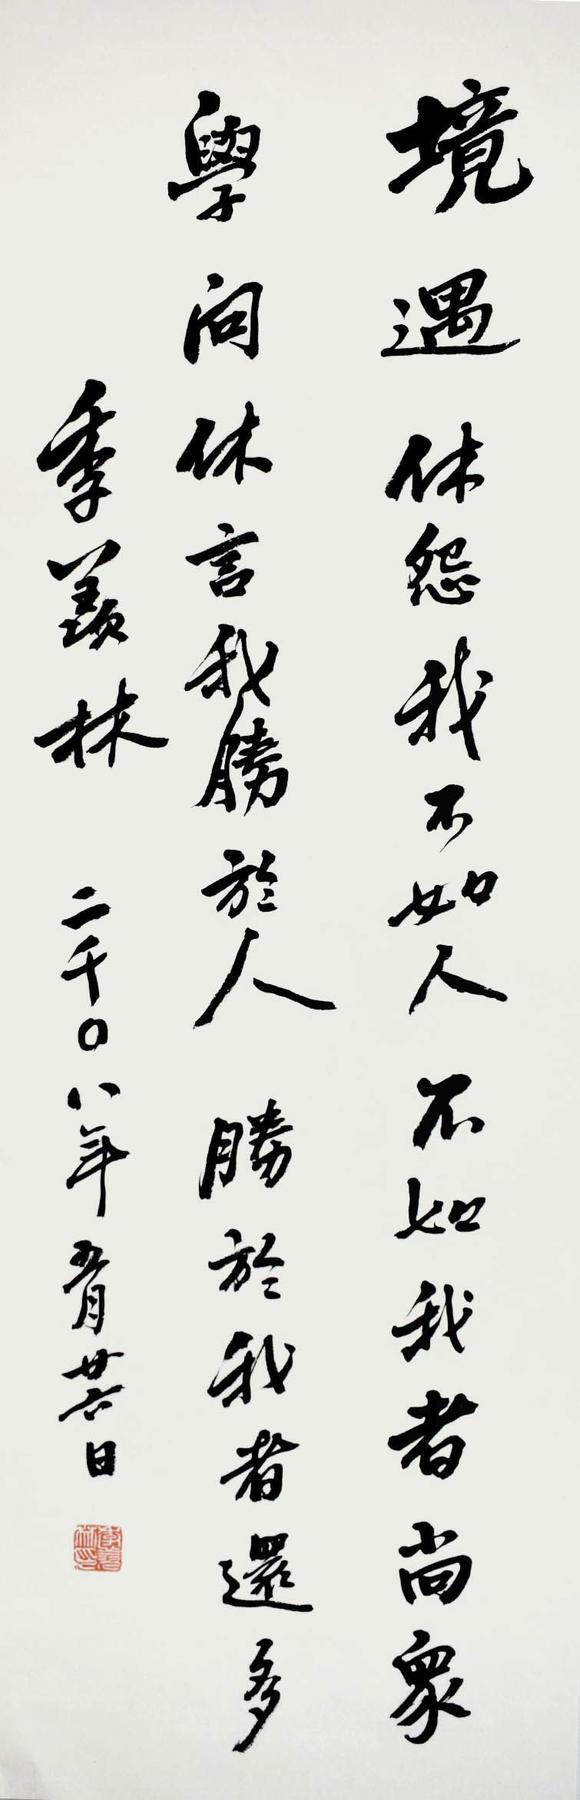 境遇休怨我不如人不如我者尚眾
學问休言我勝於人勝於我者還多
季羨林
二千〇八年五月廿六日